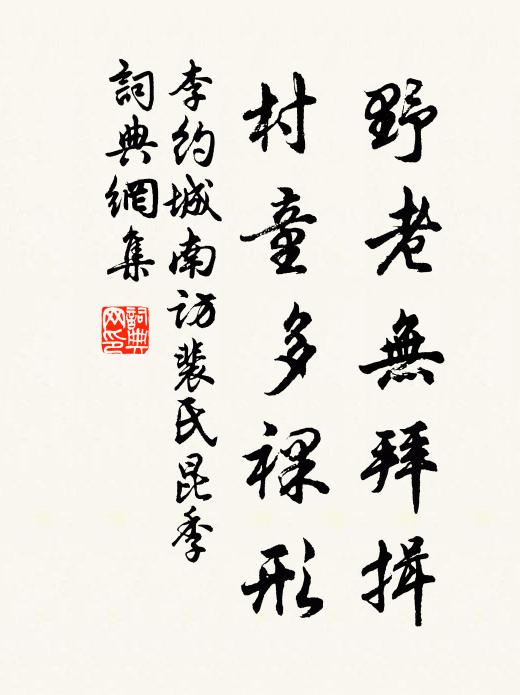 野老無拜揖
村童多裸形
李約城南访裴氏昆季
詞典網集
詞典
网印